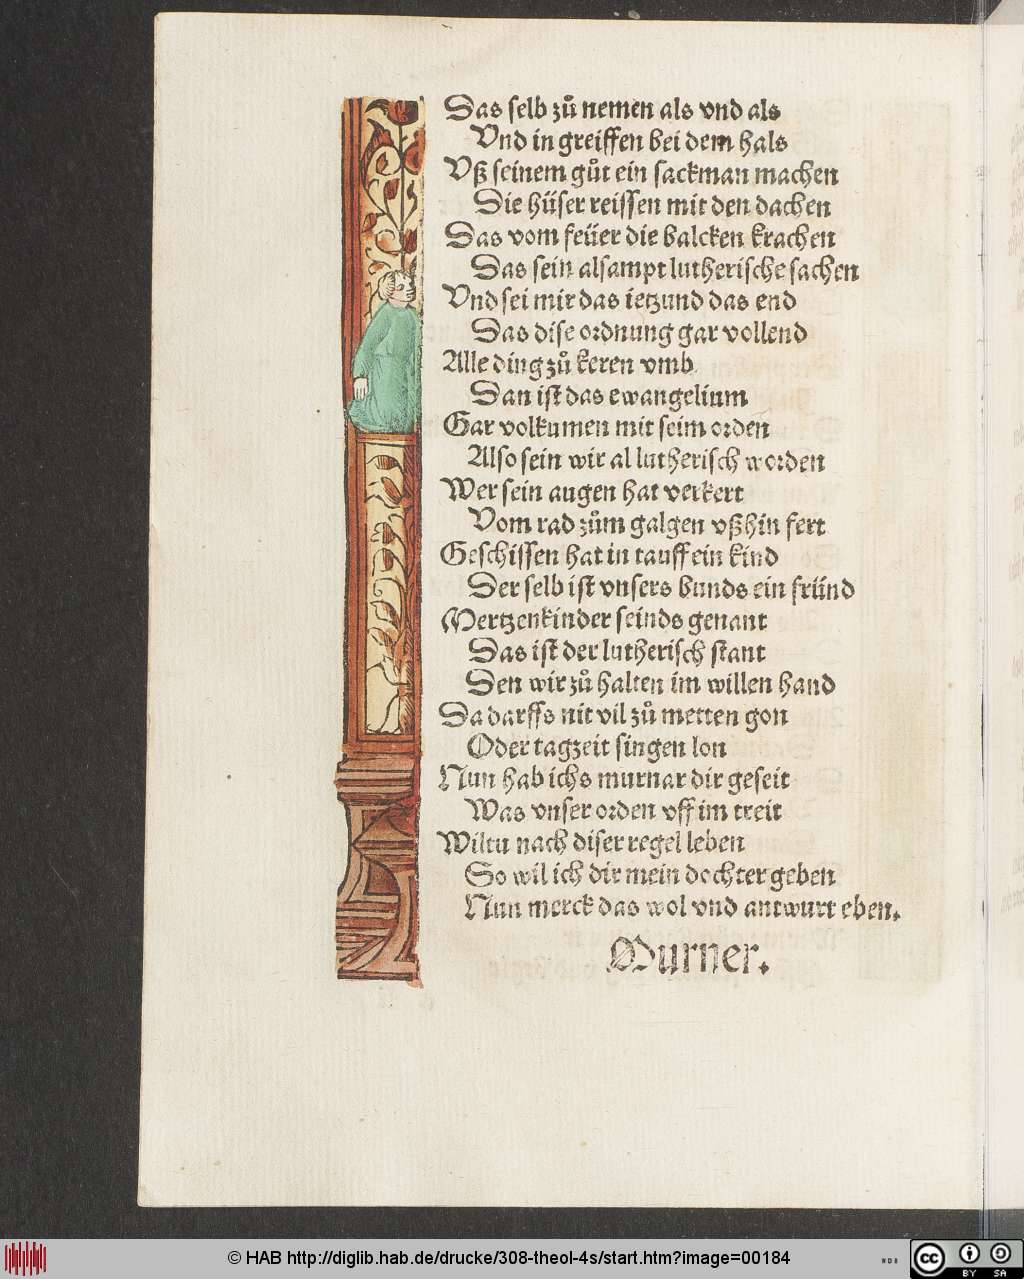 Das selb zuͦ nemen als vnd als
Vnd in greiffen bei dem hals
Vß seinem guͦt ein sackman machen
Die hüser reissen mit den dachen
Das vom feüer die balcken krachen
Das sein alsampt lutherische sachen
Vnd sei mir das ietzund das end
Das dise ordnung gar vollend
Alle ding zuͦ keren vmb
Dan ist das ewangelium
Gar volkumen mit seim orden
Also sein wir al lutherisch worden
Wer sein augen hat verkert
Vom rad zuͦm galgen vßhin fert
Geschissen hat in tauff ein kind
Der selb ist vnsers bunds ein fründ
Mertzenkinder seinds genant
Das ist der lutherisch stant
Den wir zuͦ halten im willen hand
Da darffs nit vil zuͦ metten gon
Oder tagzeit singen lon
Nun hab ichs murnar dir geseit
Was vnser orden vff im treit
Wiltu nach diser regel leben
So wil ich dir mein dochter geben
Nun merck das wol vnd antwurt eben.
Murner.
© HAB http://diglib.hab.de/drucke/308-theol-4s/start.htm?image=00184
WDB
cc BY SA